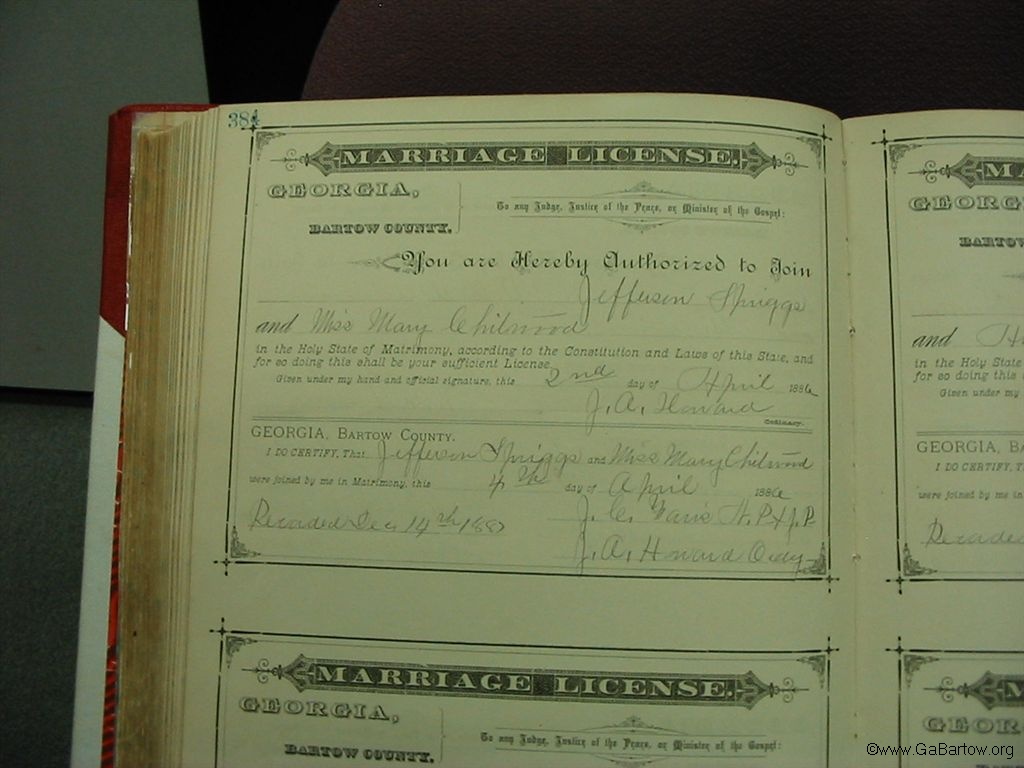 384
MARRIAGE LICENSE.
GEORGIA,
BARTOW COUNTY.
To any Judge, Justice of the Peace, or Minister of the Gospel:
You are Hereby Authorized to Join
Jefferson Spriggs
and Miss Mary Chitwood
in the Holy State of Matrimony, according to the Constitution and Laws of this State, and
for so doing this shall be your sufficient License.
Given under my hand and official signature, this 2nd day of April 1886
J. A. Howard
Ordinary.
GEORGIA, BARTOW COUNTY.
I DO CERTIFY, That Jefferson Spriggs and Miss Mary Chitwood
were joined by me in Matrimony, this 4th day of April 1886
J. C. N.P. & J.P.
Recorded Dec 14th 1887
J. A. Howard Ordy
MARRIAGE LICENSE.
GEORGIA,
BARTOW COUNTY.
To any Judge, Justice of the Peace, or Minister of the Gospel:
MA
GEORG
BARTOW
and
in the Holy State
for so doing this
Given under my
GEORGIA, BA
I DO CERTIFY, T
were joined by me in
Recorded
M
GEORG
©www.GaBartow.org